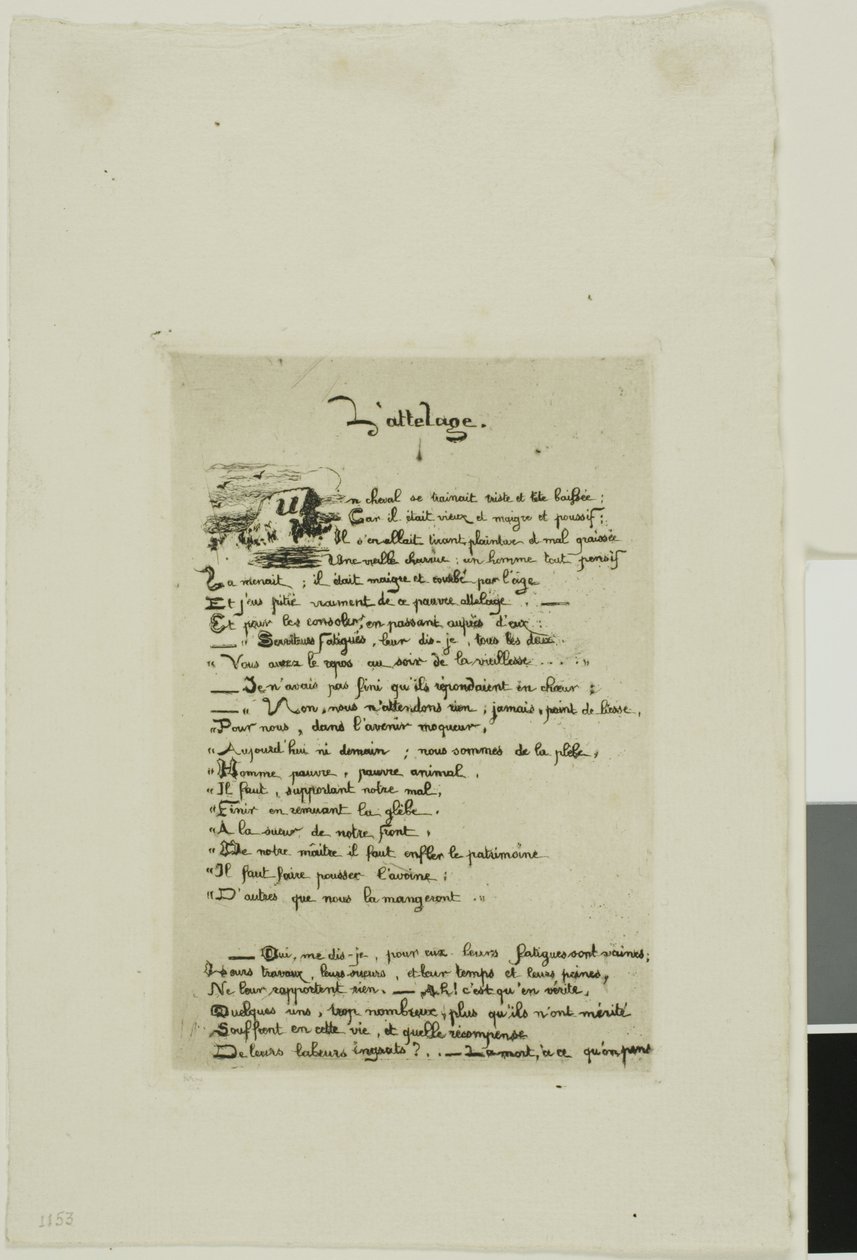 L'attelage.
Un cheval se trainait triste et tête baissée ;
Car il était vieux et maigre et poussif ;
Il s'en allait tirant, plaintive et mal graissée
Une vieille charrue ; un homme tout pensif
La menait ; il était maigre et courbé par l'âge
Et j'eus pitié vraiment de ce pauvre attelage . —
Et pour les consoler, en passant auprès d'eux :
— " Serviteurs fatigués, leur dis-je, tous les deux
" Vous aurez le repos au soir de la vieillesse . . . . "
— Je n'avais pas fini qu'ils répondaient en chœur :
— " Non, nous n'attendons rien ; jamais, point de liesse,
" Pour nous, dans l'avenir moqueur,
" Aujourd'hui ni demain ; nous sommes de la plèbe,
" Homme pauvre, pauvre animal,
" Il faut, supportant notre mal,
" Finir en remuant la glèbe.
" A la sueur de notre front,
" De notre maître il faut enfler le patrimoine
" Il faut faire pousser l'avoine ;
" D'autres que nous la mangeront . "
— Oui, me dis-je, pour eux leurs fatigues sont vaines ;
Leurs travaux, leurs sueurs, et leur temps et leurs peines,
Ne leur rapportent rien. — Ah ! c'est qu'en vérité,
Quelques uns, trop nombreux, plus qu'ils n'ont mérité
Souffrent en cette vie, et quelle récompense
De leurs labeurs ingrats ? . . — La mort, à ce qu'on pense
1153